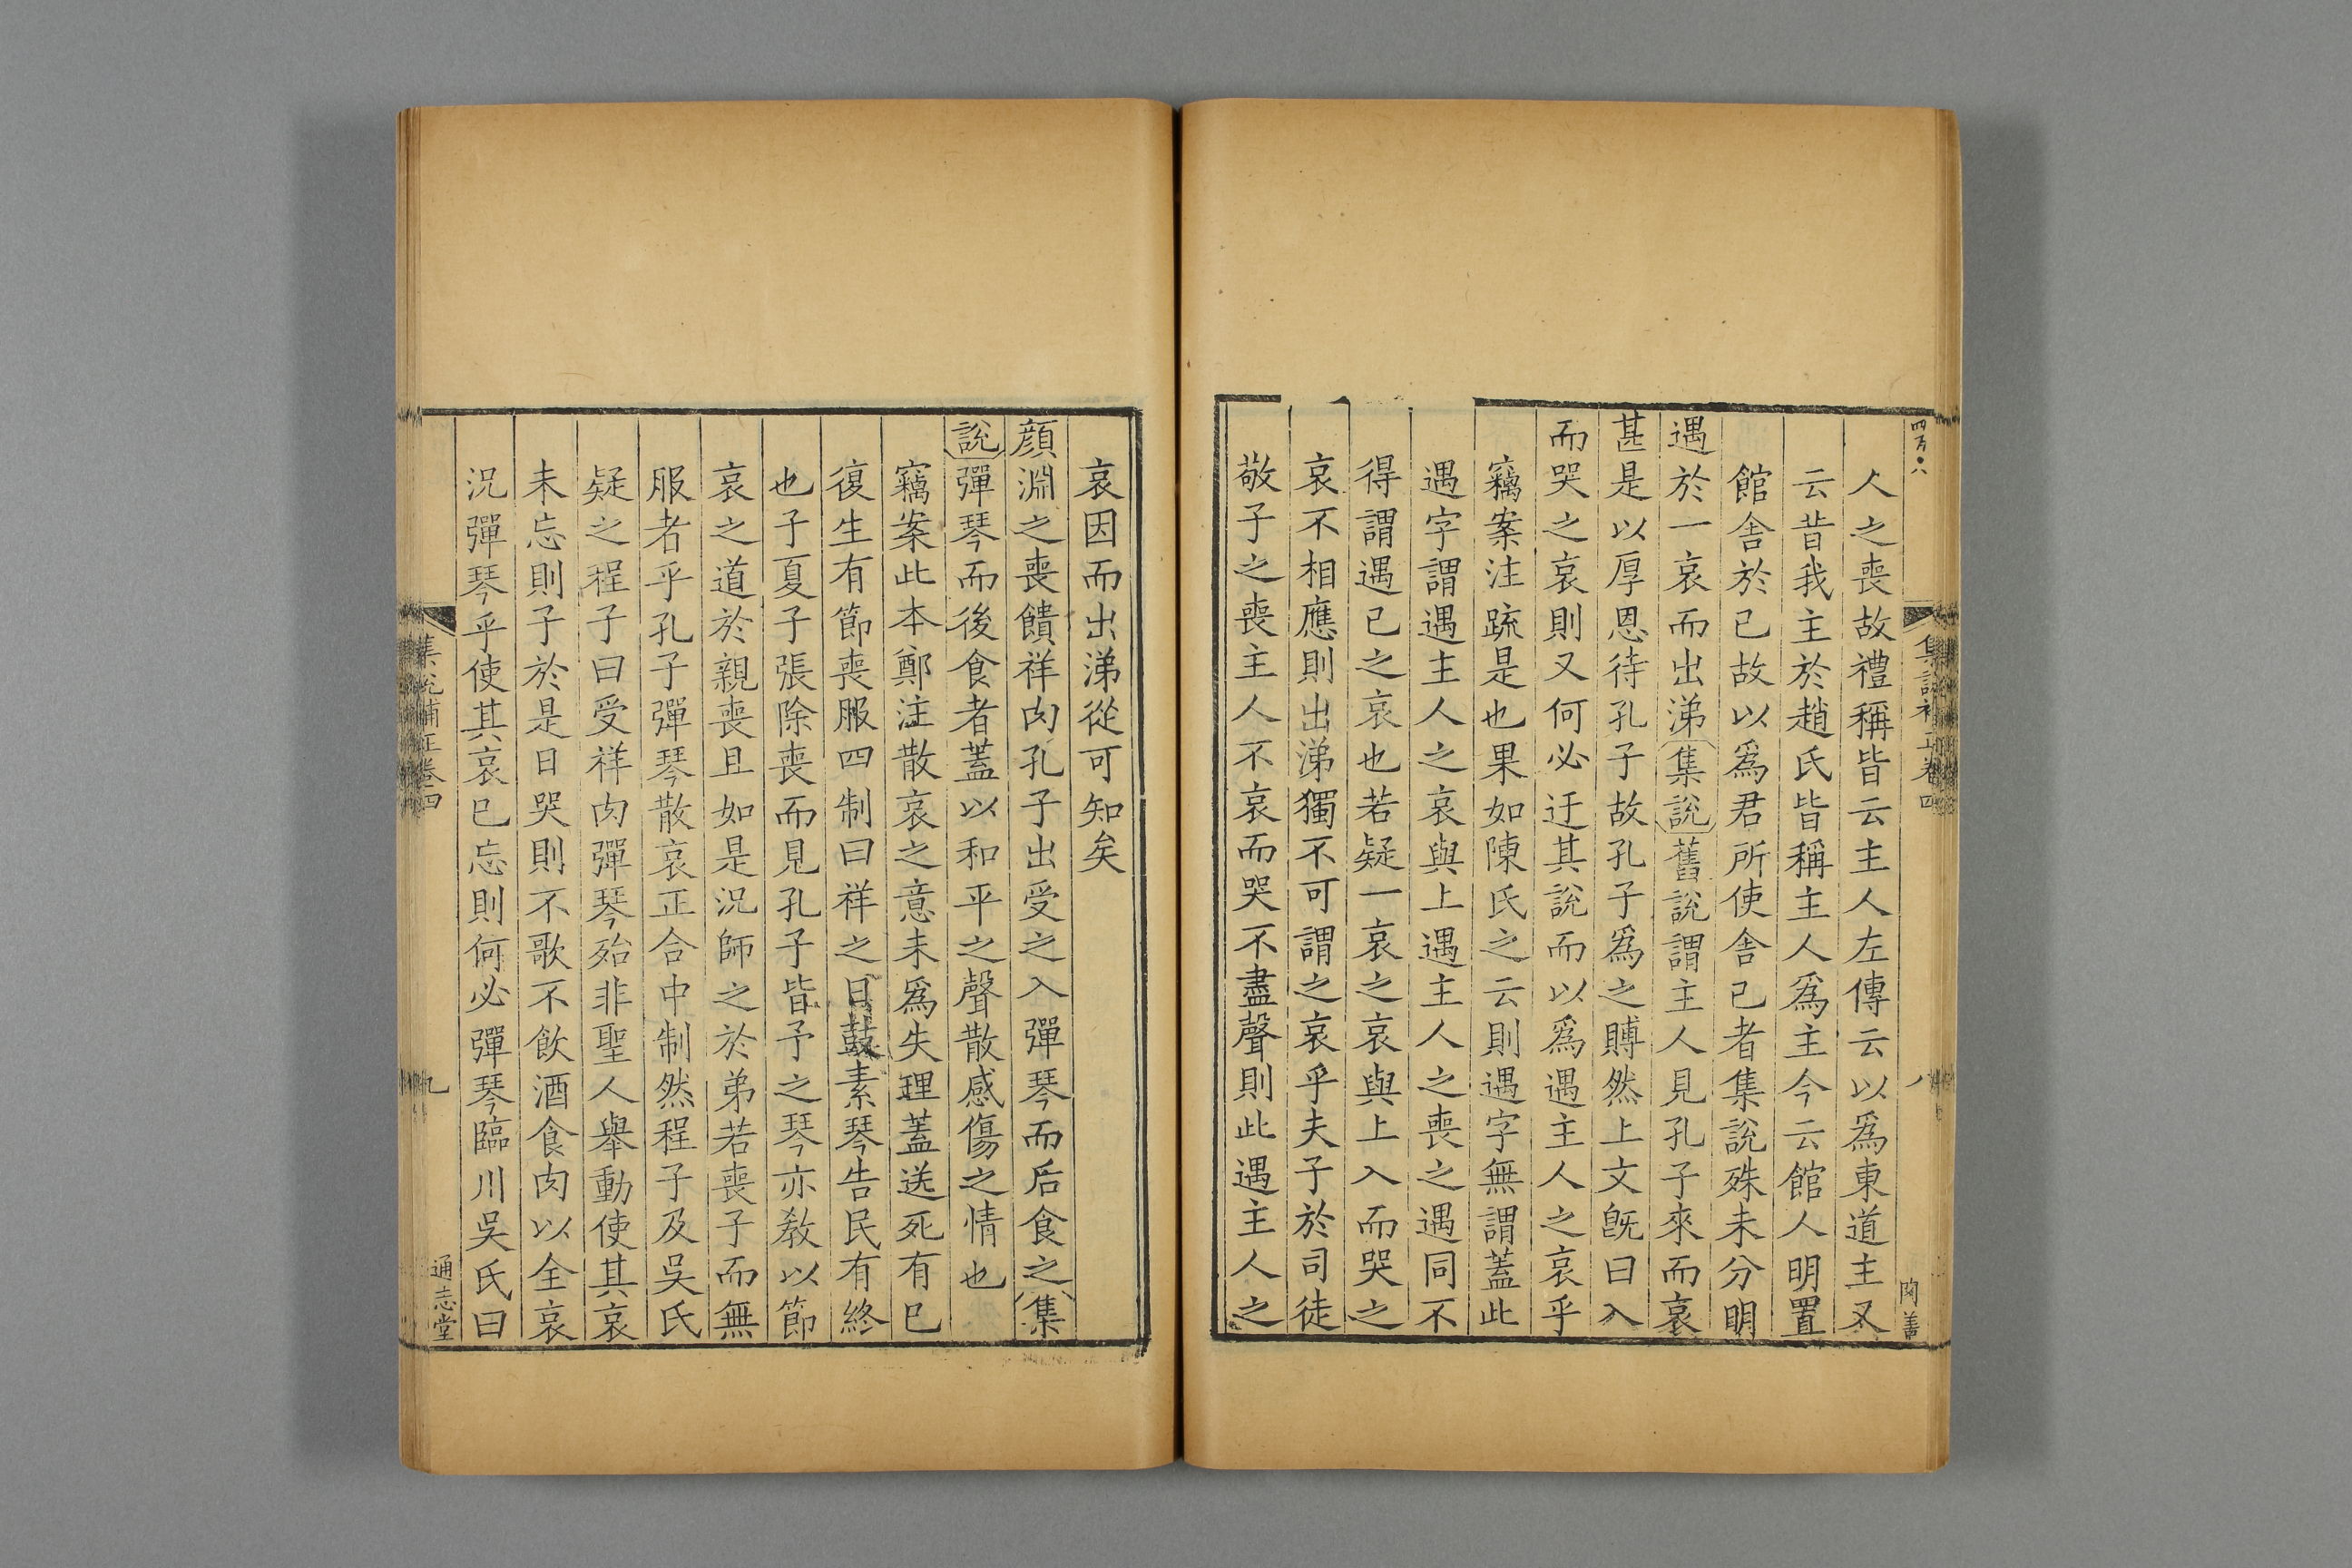 四百○八
集說補正卷四
八
人之喪故禮稱皆云主人左傳云以爲東道主又
云昔我主於趙氏皆稱主人爲主今云館人明置
館舍於已故以爲君所使舍己者集說殊未分明
遇於一哀而出涕集說舊說謂主人見孔子來而哀
甚是以厚恩待孔子故孔子爲之賻然上文旣曰入
而哭之哀則又何必迂其說而以爲遇主人之哀乎
竊案注疏是也果如陳氏之云則遇字無謂蓋此
遇字謂遇主人之哀與上遇主人之喪之遇同不
得謂遇已之哀也若疑一哀之哀與上入而哭之
哀不相應則出涕獨不可謂之哀乎夫子於司徒
敬子之喪主人不哀而哭不盡聲則此遇主人之
哀因而出涕從可知矣
顔淵之喪饋祥肉孔子出受之入彈琴而后食之集
說彈琴而後食者蓋以和平之聲散感傷之情也
竊案此本鄭注散哀之意未爲失理蓋送死有已
復生有節喪服四制曰祥之日鼓素琴告民有終
也子夏子張除喪而見孔子皆予之琴亦敎以節
哀之道於親喪且如是況師之於弟若喪子而無
服者乎孔子彈琴散哀正合中制然程子及吳氏
疑之程子曰受祥肉彈琴殆非聖人舉動使其哀
未忘則子於是日哭則不歌不飲酒食肉以全哀
況彈琴乎使其哀已忘則何必彈琴臨川吳氏曰
集說補正卷四
九
通志堂